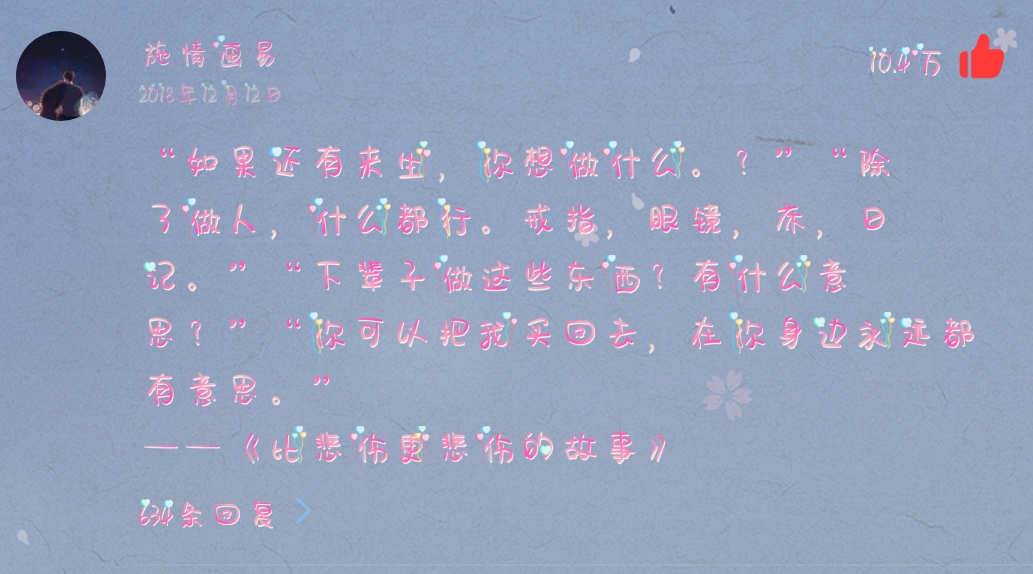 施情画易
10.4万
2018年12月12日
“如果还有来生，你想做什么。？”“除
了做人，什么都行。戒指，眼镜，床，日
记。”“下辈子做这些东西？有什么意
思？”“你可以把我买回去，在你身边永远都
有意思。”
——《比悲伤更悲伤的故事》
634条回复 >